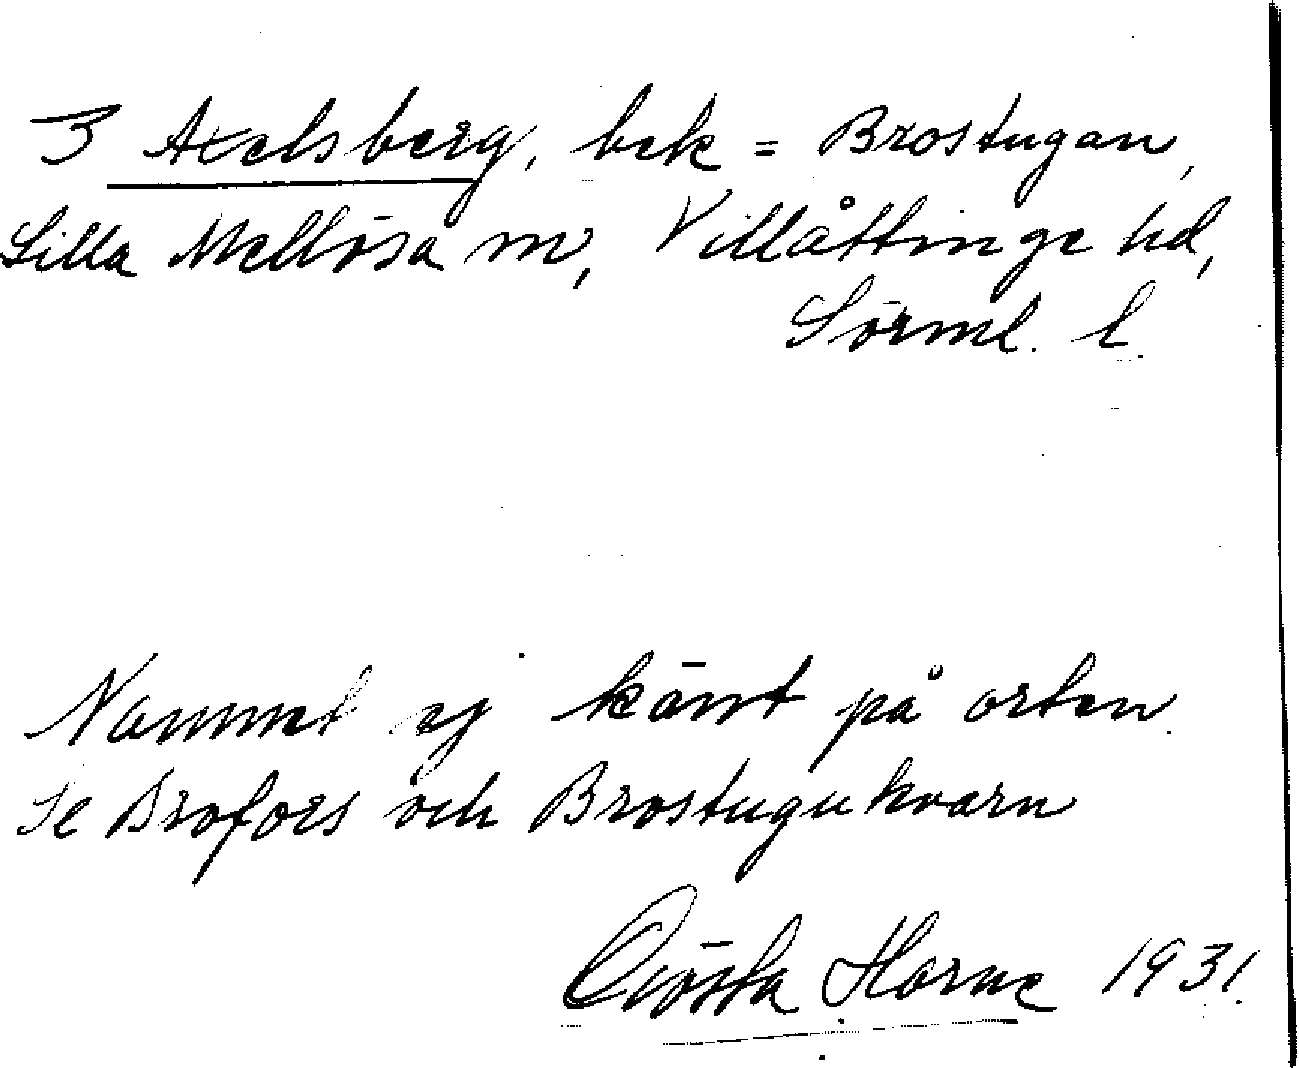 3 Axelsberg, bek = Brostugan,
Lilla Mellösa sn, Villåttinge hd,
Sörml. l.
Namnet ej känt på orten.
Se Brofors och Brostugukvarn
Gösta Horne 1931.